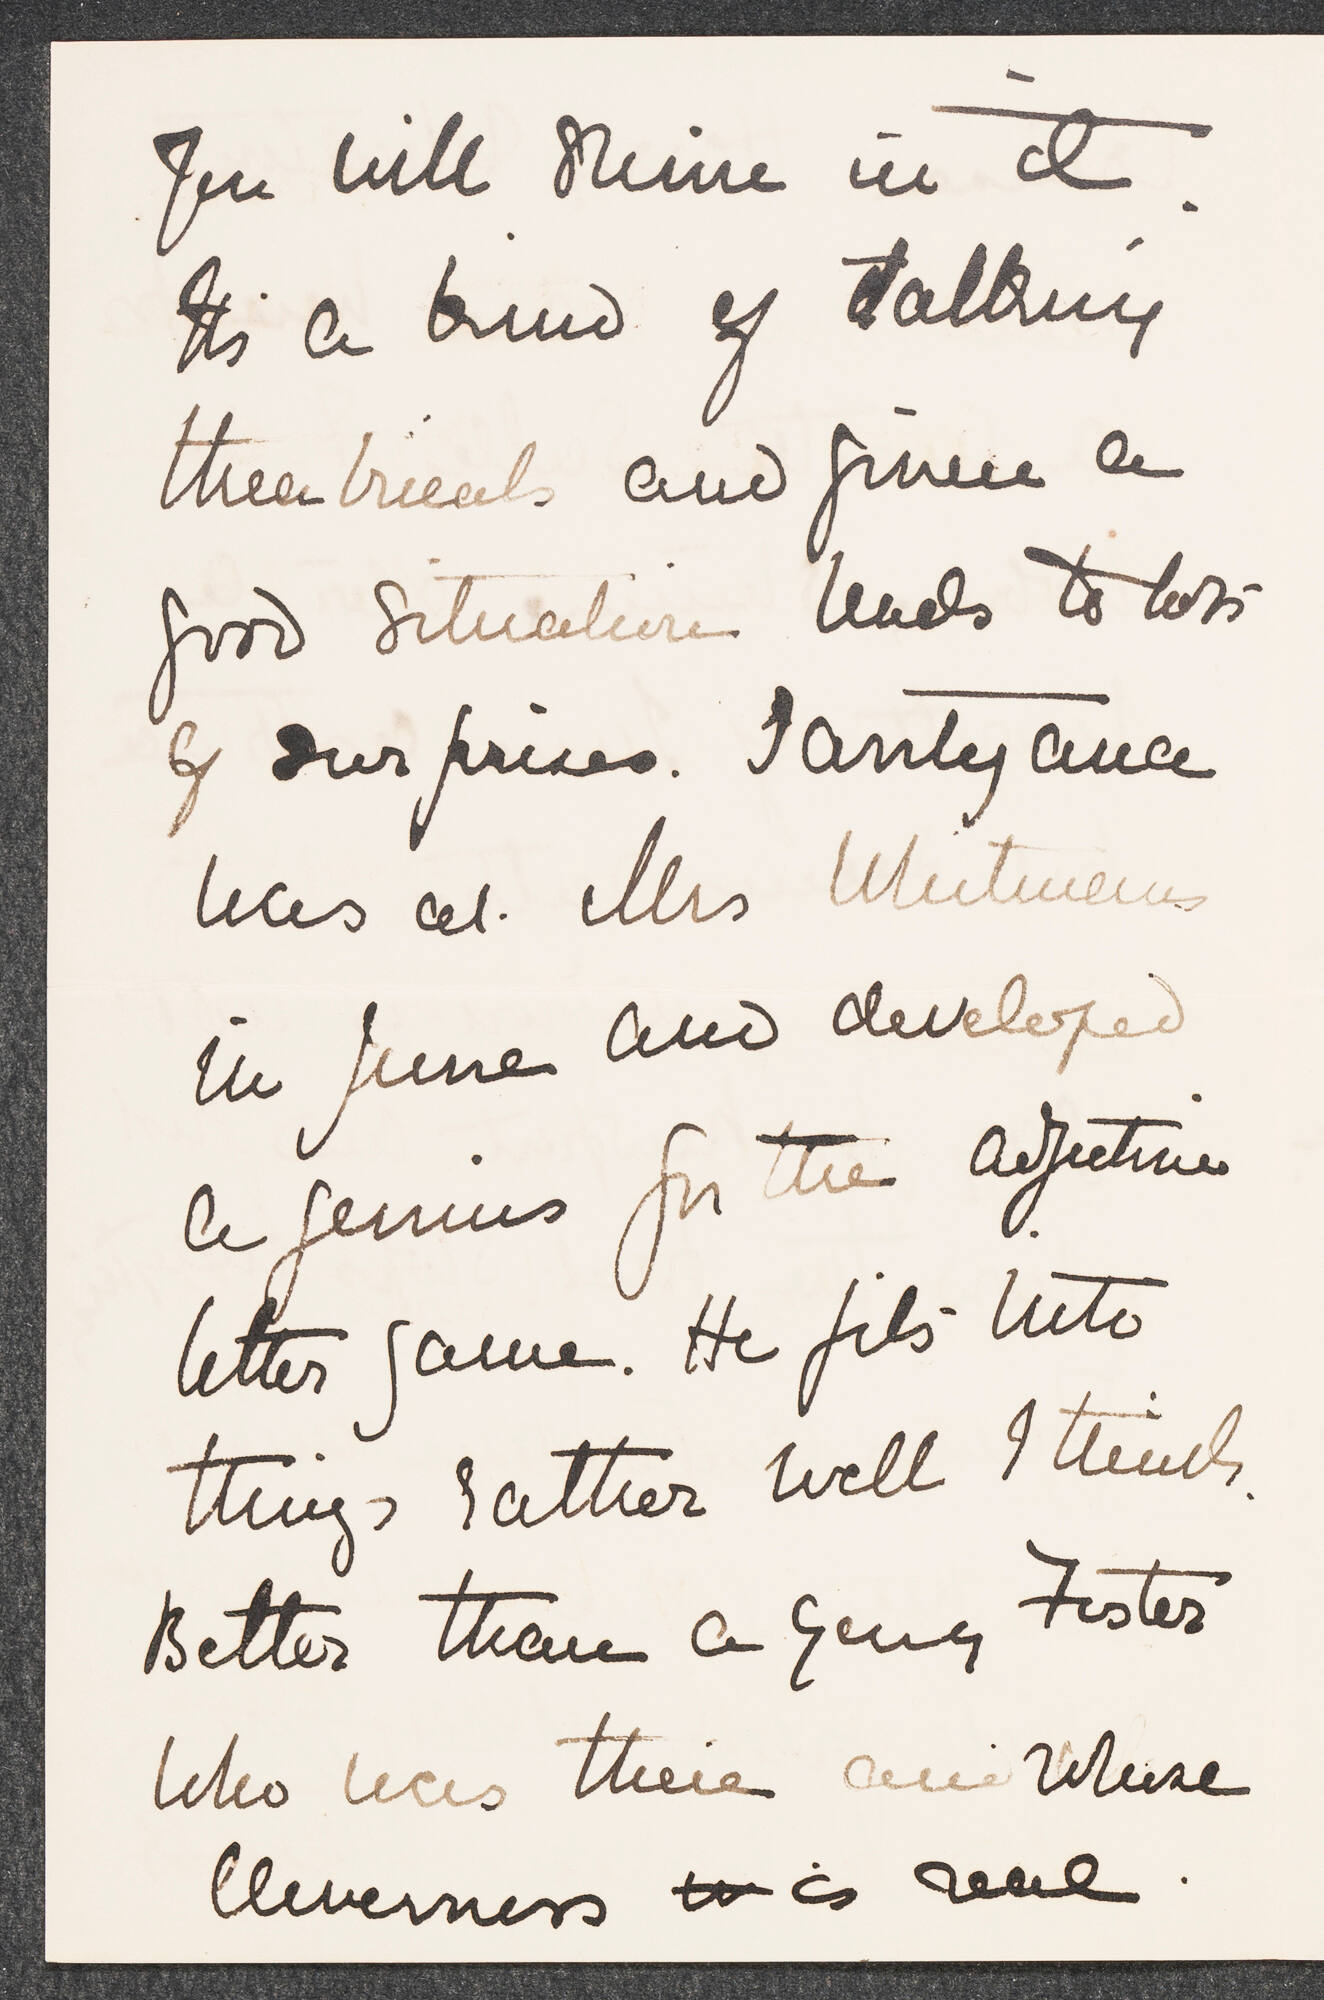 You will shine in it.
It's a kind of talking
theatricals and given a
good situation leads to lots
of surprises. Santayana
was at Mrs Whitmans
in June and developed
a genius for the adjective
letter game. He fits into
things rather well I think.
Better than a young Foster
who was there and whose
Cleverness is real.